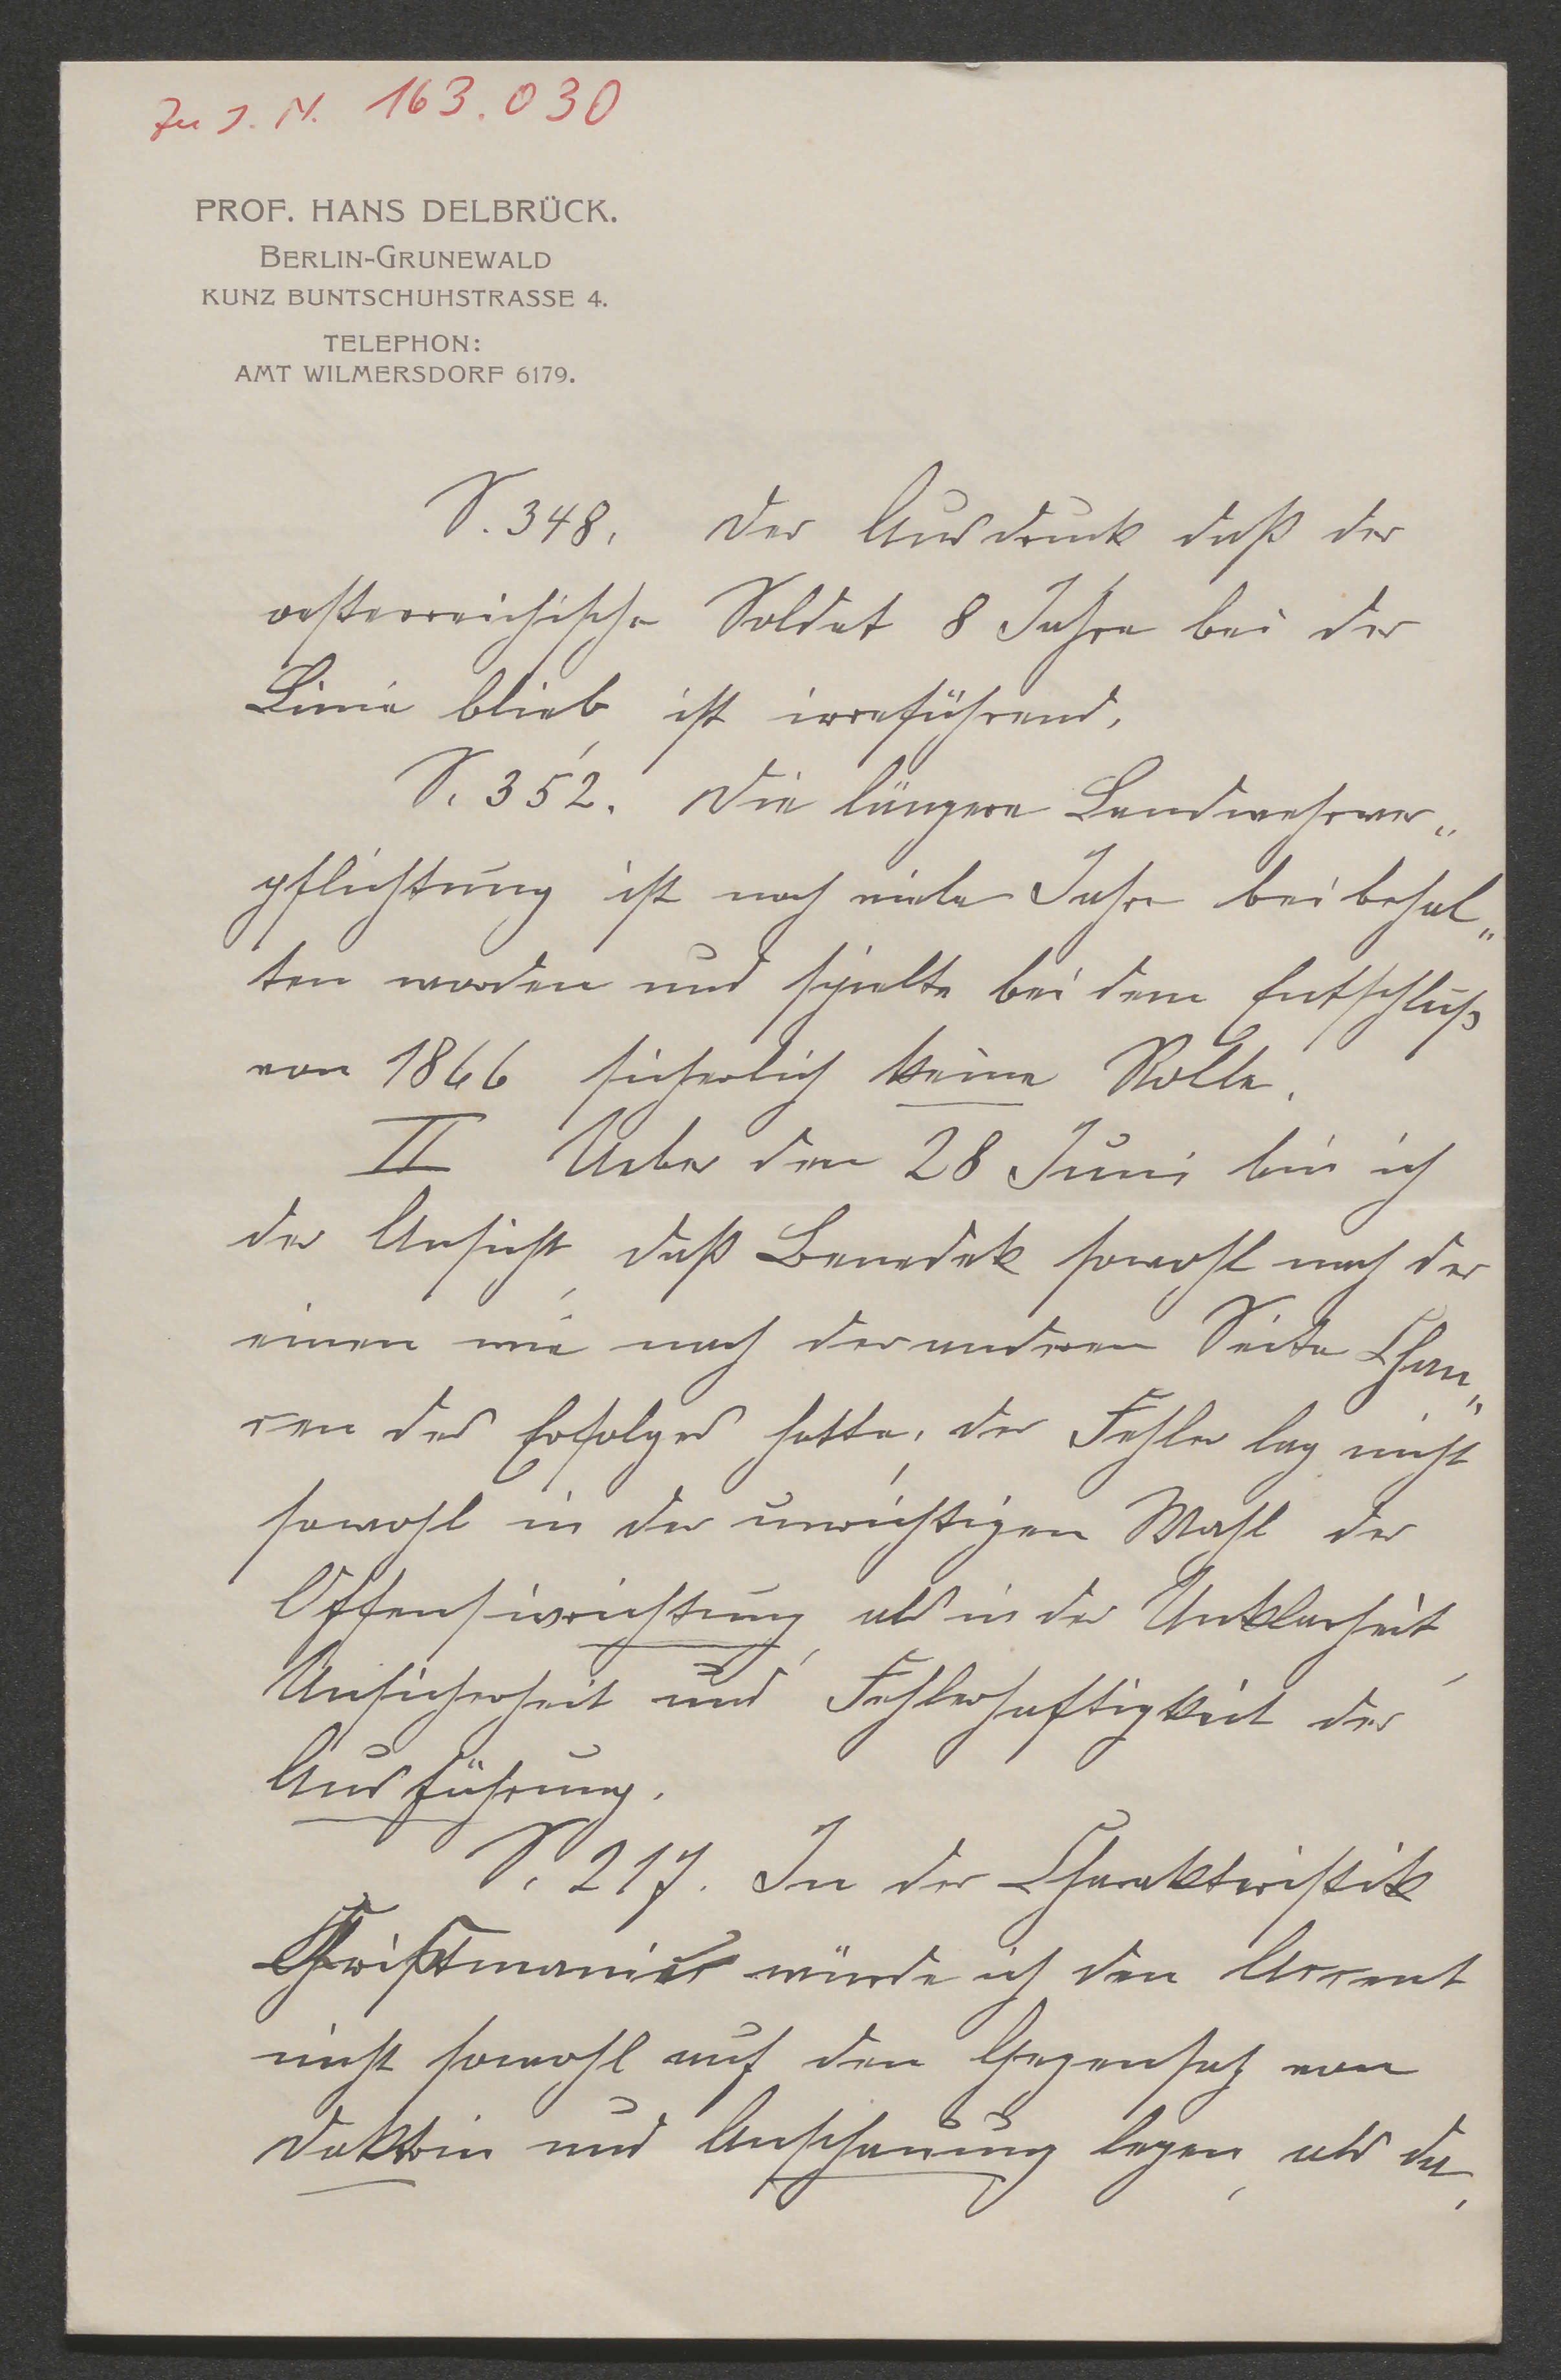 Zu J. N. 163.030
PROF. HANS DELBRÜCK.
BERLIN-GRUNEWALD
KUNZ BUNTSCHUHSTRASSE 4.
TELEPHON:
AMT WILMERSDORF 6179.
S. 348. Der Ausdruck daß der
oesterreichische Soldat 8 Jahre bei der
Linie blieb, ist irreführend.
S. 352. Die längere Landwehrver„
pflichtung ist noch viele Jahre beibehal„
ten worden und spielte bei dem Entschluß
von 1866 sicherlich keine Rolle.
II Ueber den 28 Juni bin ich
der Ansicht, daß Benedek sowohl nach der
einen wie nach der anderen Seite Chan„
cen des Erfolges hatte, der Fehler lag nicht
sowohl in der unrichtigen Wahl der
Offensivrichtung, als in der Unklarheit,
Unsicherheit und Fehlerhaftigkeit der
Ausführung.
S. 217. In der Charakteristik
Krismanics würde ich den Accent
nicht sowohl auf den Gegensatz von
Doktrin und Anschauung legen, als da,